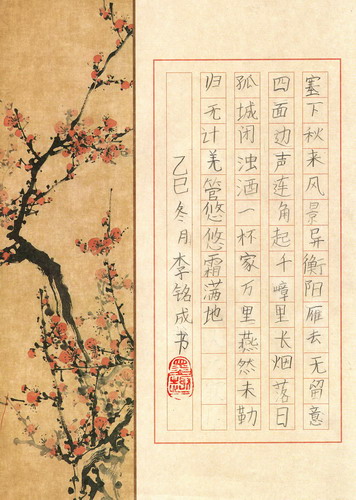 塞下秋来风景异衡阳雁去无留意
四面边声连角起千嶂里长烟落日
孤城闭浊酒一杯家万里燕然未勒
归无计羌管悠悠霜满地
乙巳冬月李铭成书